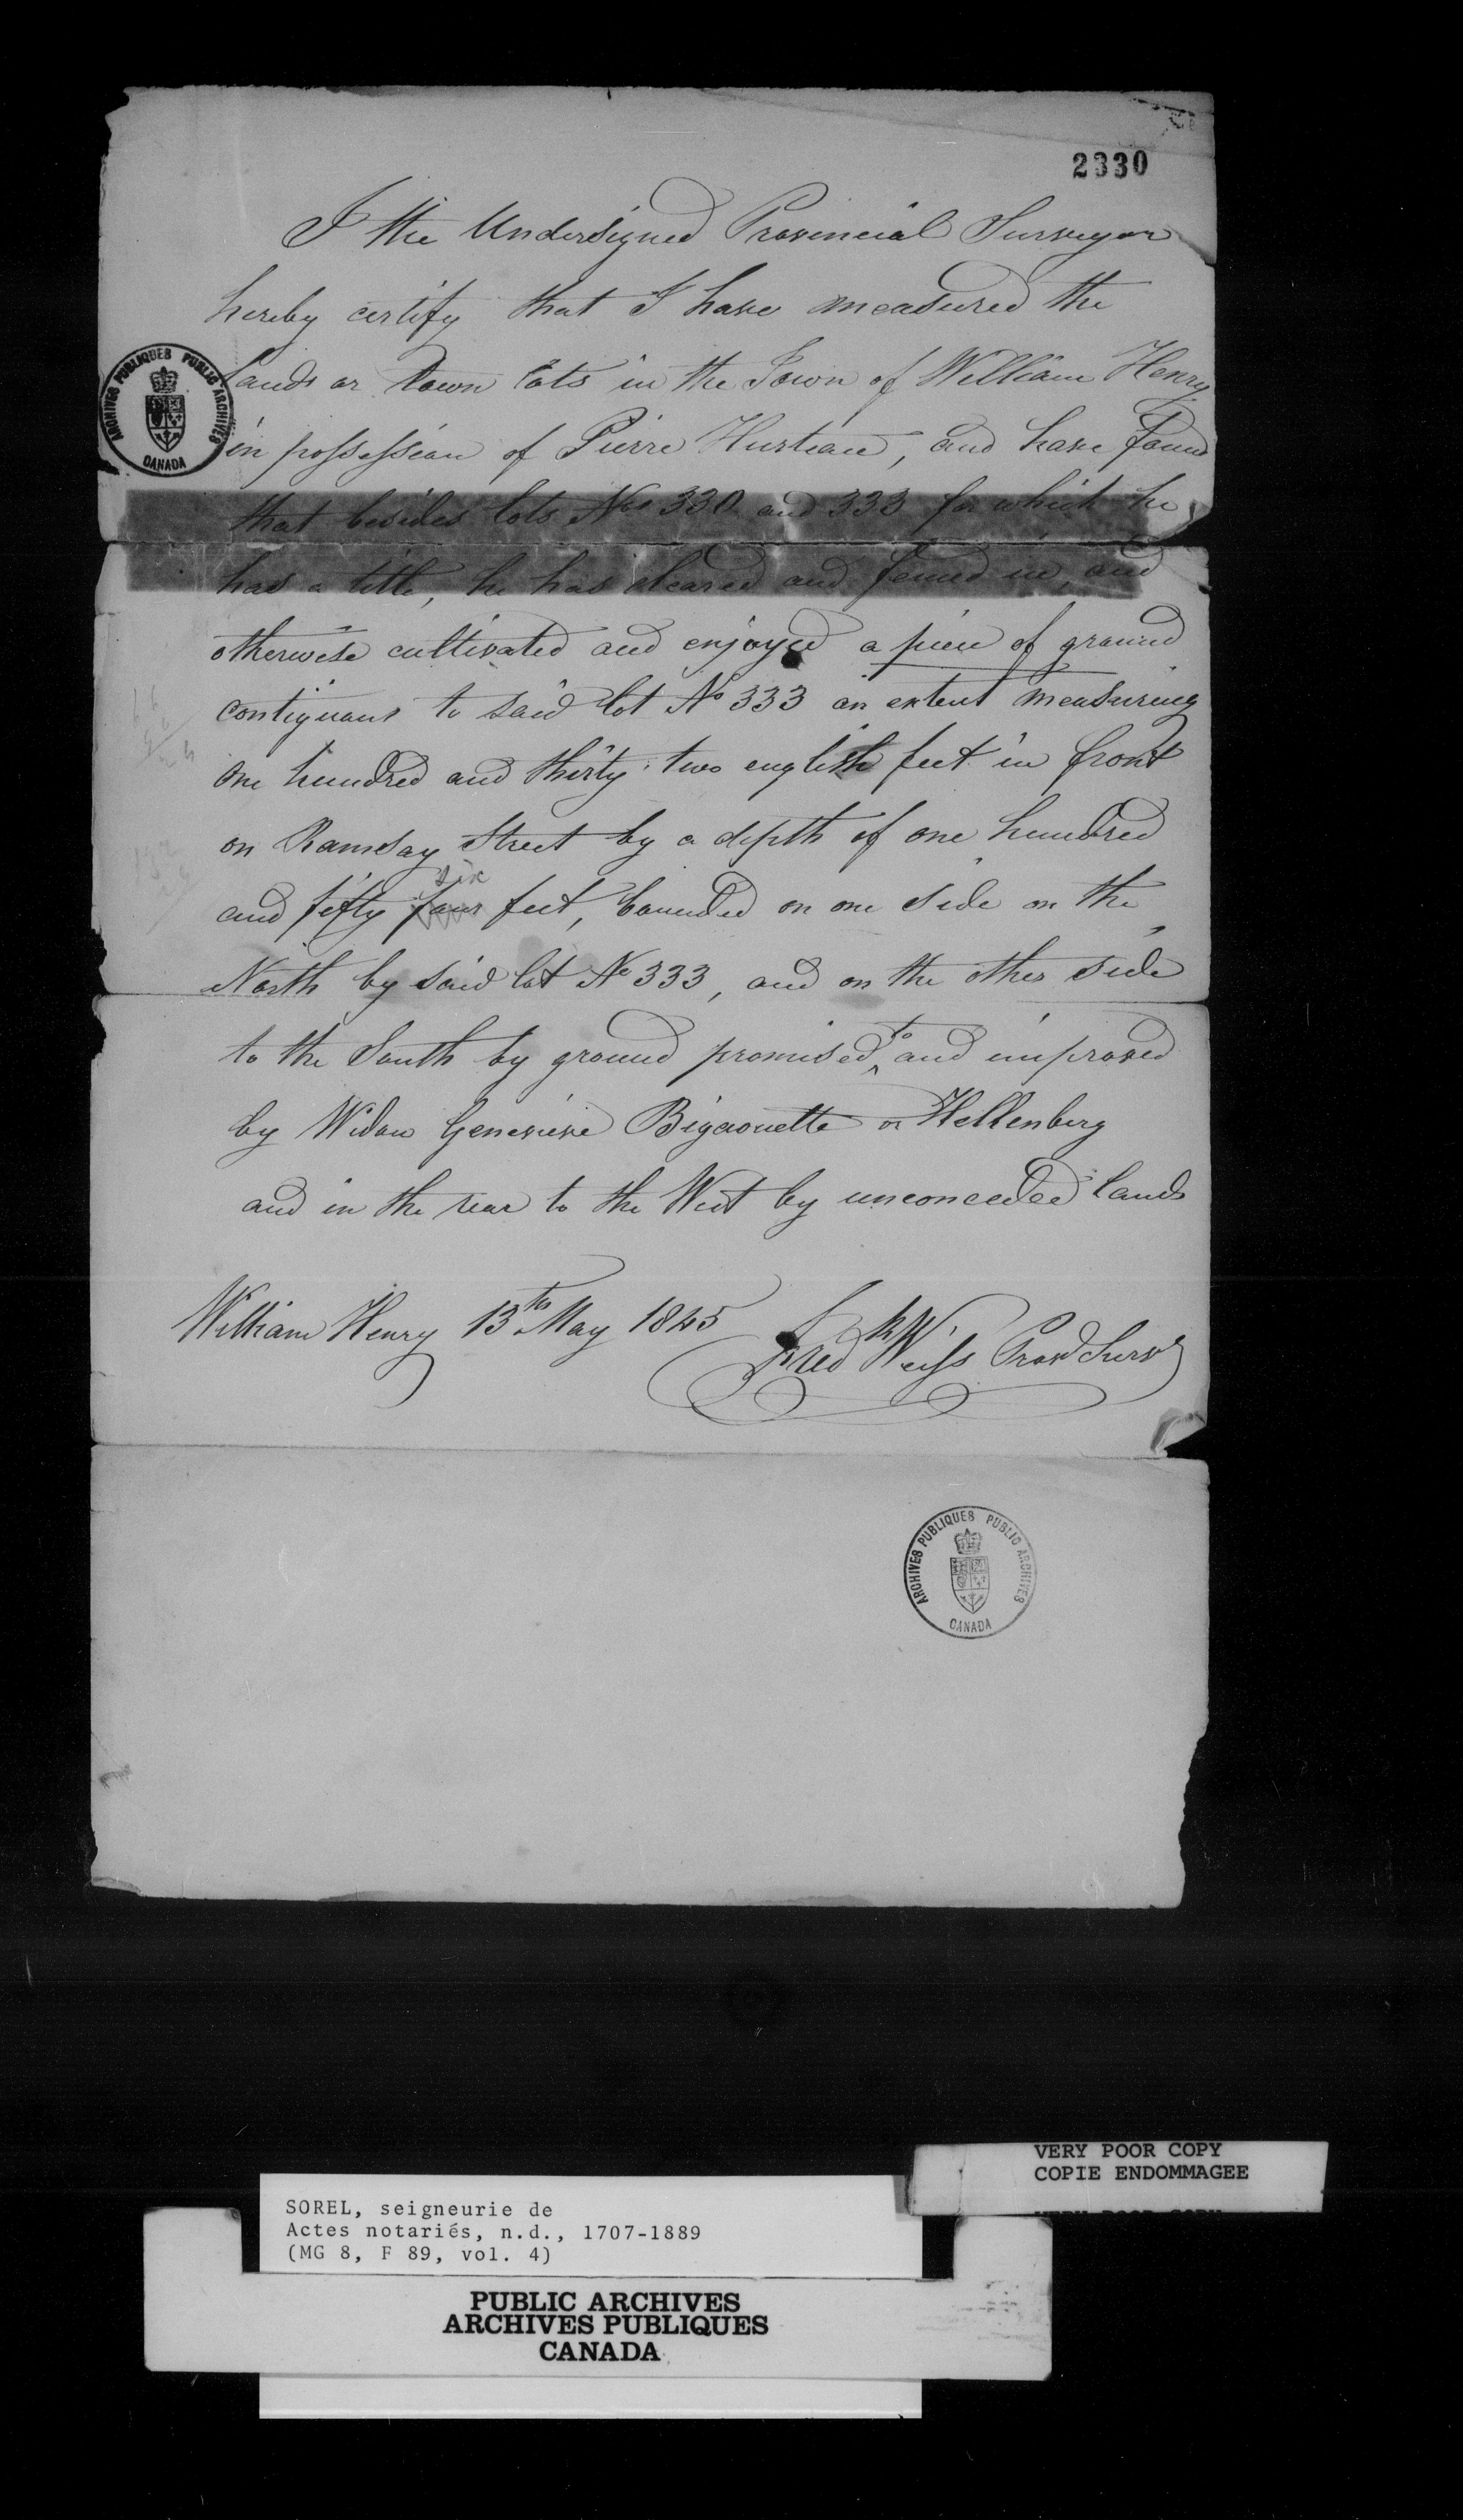 2330
I the Undersigned Provincial Surveyor
hereby certify that I have measured the
Lands or Town Lots in the Town of William Henry
in possession of Pierre Hurteau, and have found
that besides lots Nos 330 and 333 for which he
has a title, he has cleared and fenced in, and
otherwise cultivated and enjoyed a piece of ground
contiguous to said lot No 333 an extent measuring
one hundred and thirty two english feet in front
on Ramsay Street by a depth of one hundred
six
and fifty four feet, bounded on one side on the
North by said lot No 333, and on the other side
to the South by ground promised to and improved
by Widow Genevieve Bigaouette or Hellenberg
and in the rear to the West by unconceded lands
William Henry 13th May 1845 Fred Weiss Prov Surv
ARCHIVES PUBLIQUES PUBLIC ARCHIVES
CANADA
ARCHIVES PUBLIQUES PUBLIC ARCHIVES
CANADA
VERY POOR COPY
COPIE ENDOMMAGEE
SOREL, seigneurie de
Actes notariés, n.d., 1707-1889
(MG 8, F 89, vol. 4)
PUBLIC ARCHIVES
ARCHIVES PUBLIQUES
CANADA